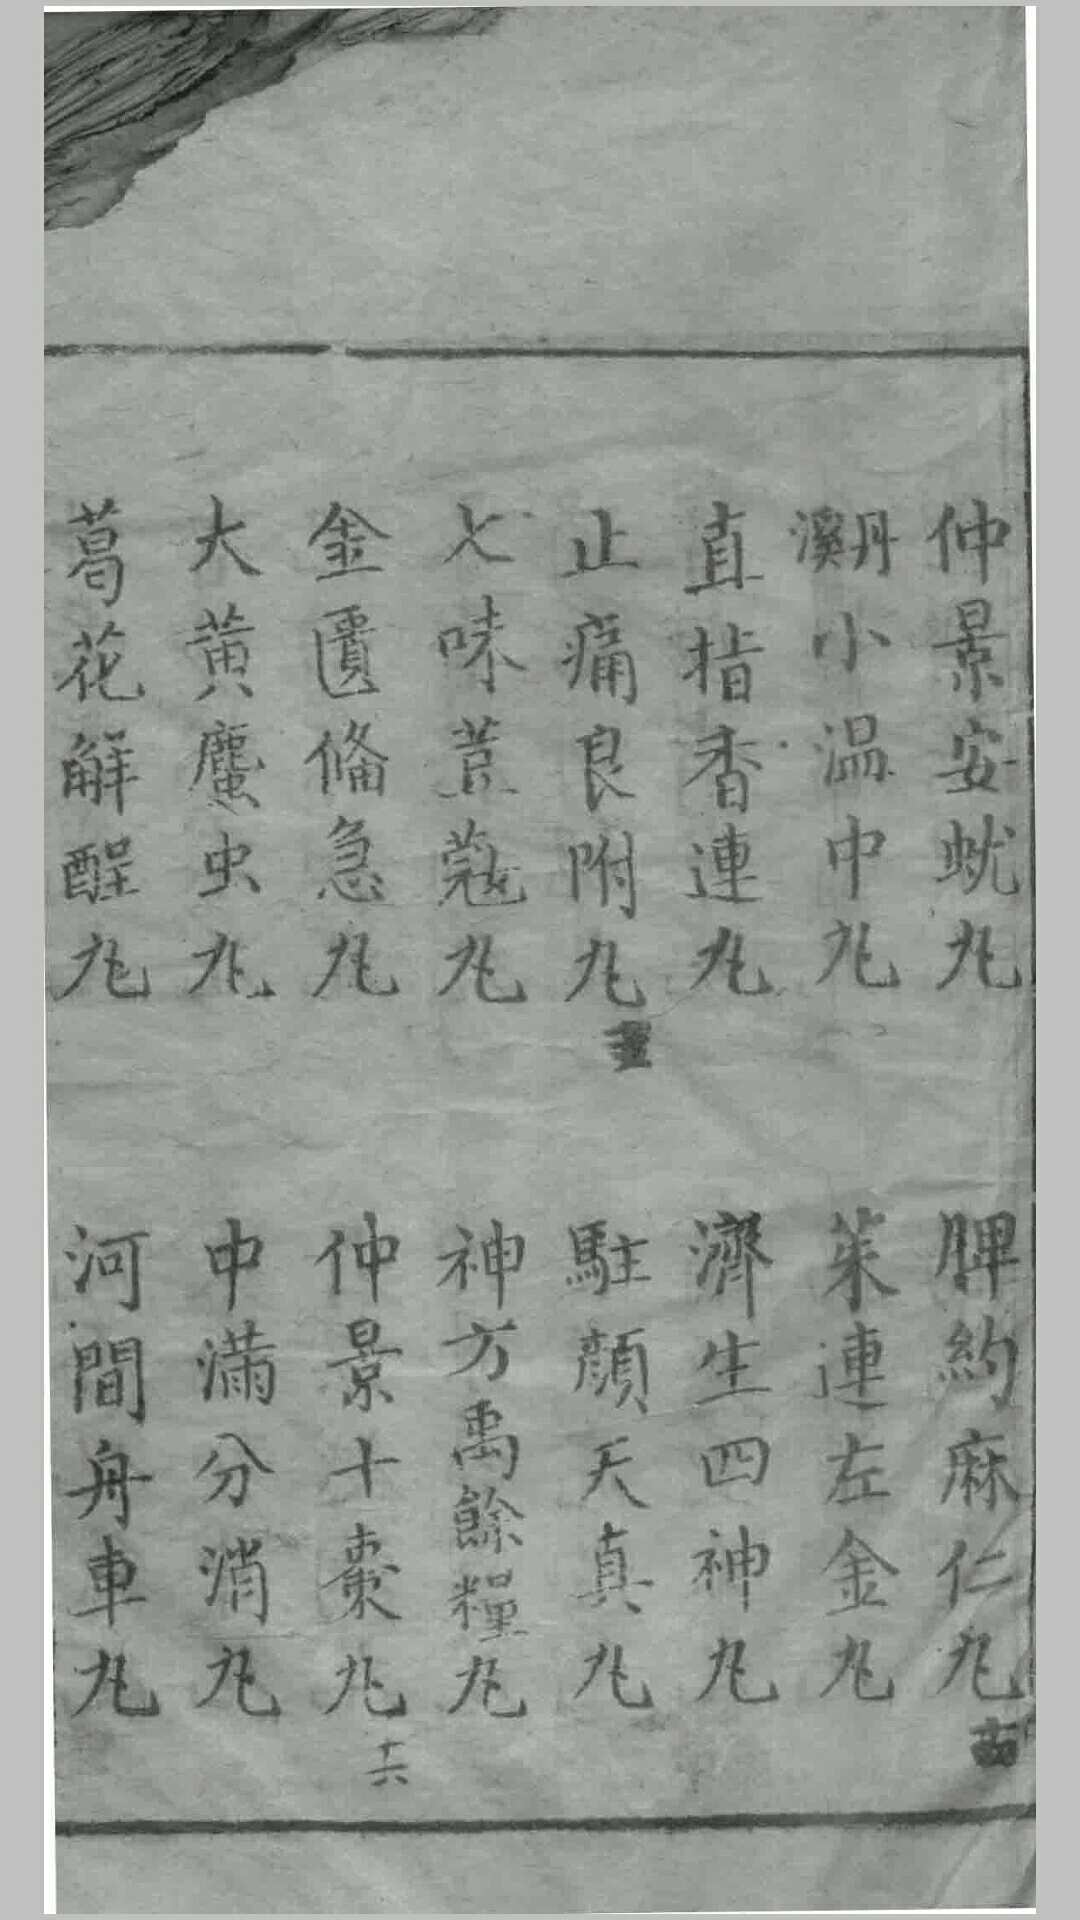 仲景安蚘丸
脾約麻仁丸
丹溪小温中丸
茱連左金丸
直指香連丸
濟生四神丸
止痛良附丸
駐顔天真丸
七味荳蔻丸
神方禹餘糧丸
金匱備急丸
仲景十棗丸
十六
大黄䗪虫丸
中滿分消丸
葛花解酲丸
河間舟車丸